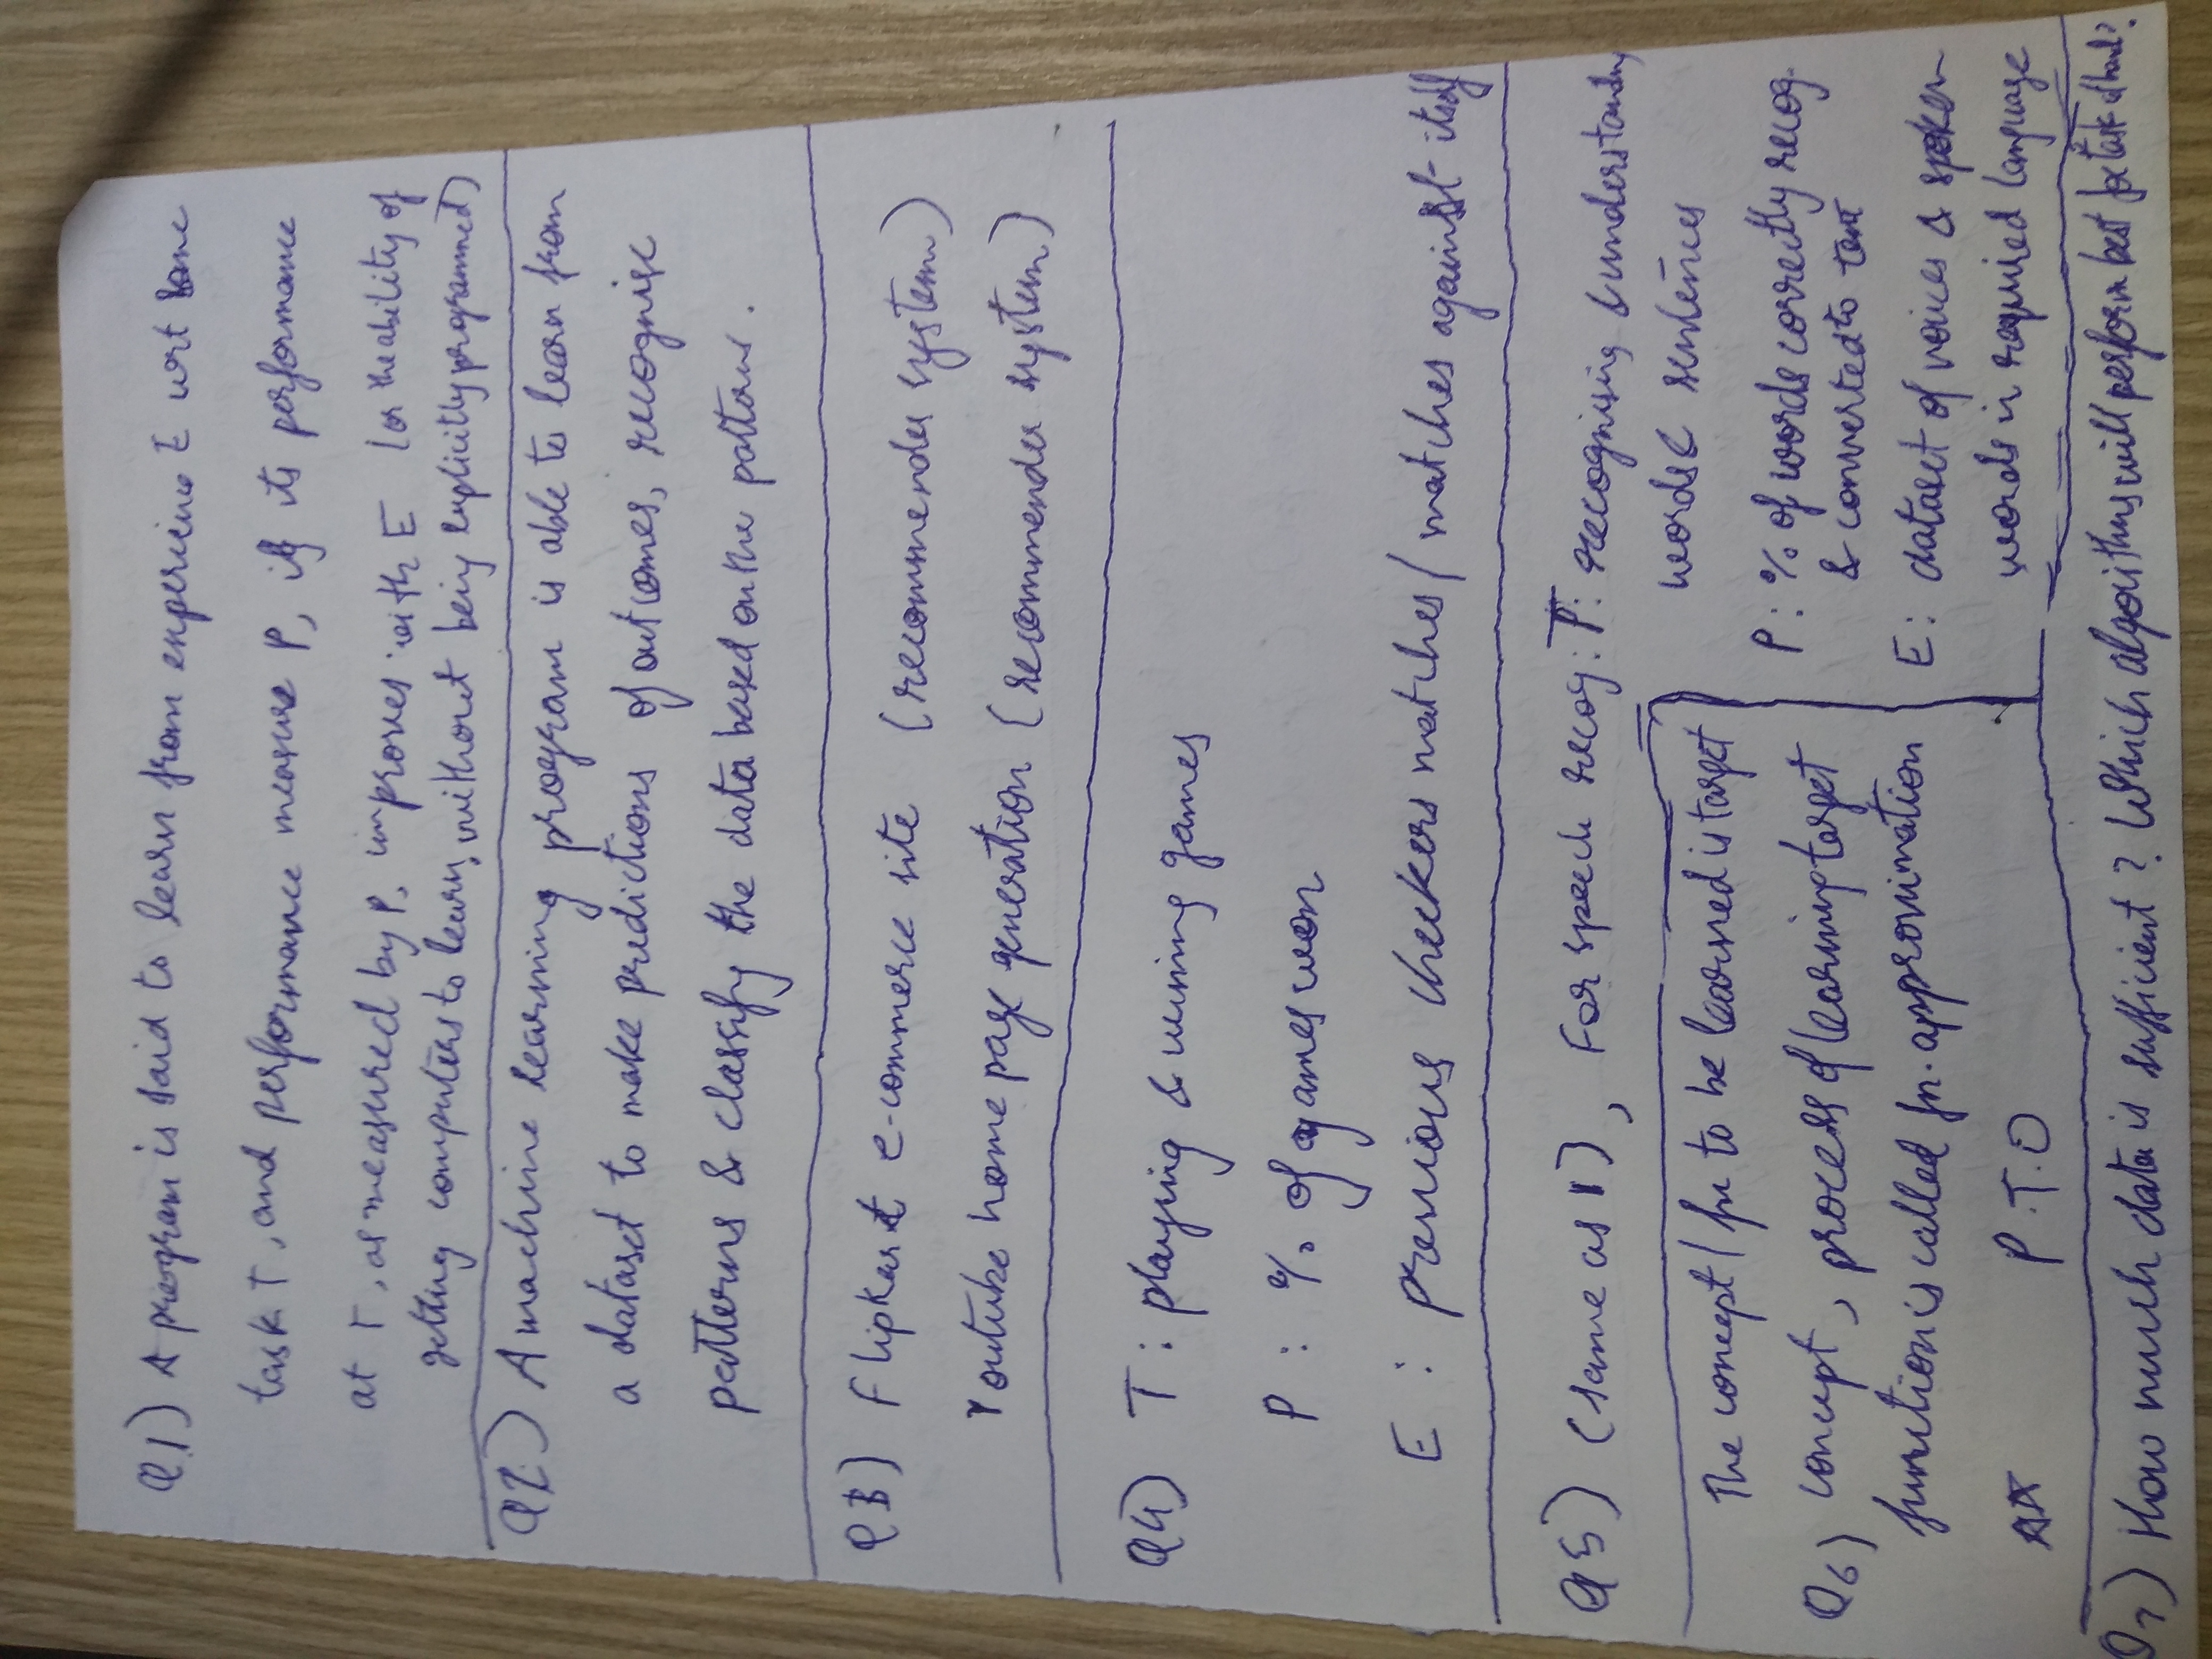 Q1) A program is said to learn from experience E wrt some
task T, and performance measure P, if its performance
at T, as measured by P, improves with E (or the ability of
getting computers to learn, without being explicitly programmed)
Q2) A machine learning program is able to learn from
a dataset to make predictions of outcomes, recognise
patterns & classify the data based on the pattern.
Q3) Flipkart e-commerce site (recommender system)
Youtube home page generation (recommender system)
Q4) T: playing & wining games
P: % of games won
E: previous checkers matches / matches against itself
Q5) (same as 1), For speech recog: T: recognising & understanding
words & sentences
P: % of words correctly recog.
& converted to text
E: dataset of voices & spoken
words in required language
The concept / fn to be learned is target
Q6) concept, process of learning target
function is called fn. approximation
P.T.O
Q7) How much data is sufficient? Which algorithms will perform best for task at hand?